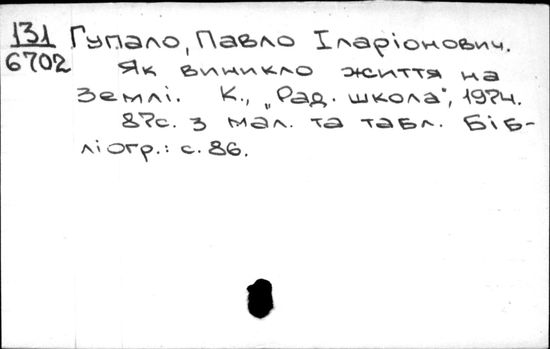 131 Гупало, Павло Іларіонович.
6702 Як виникло життя на
Землі. К., „Рад. школа", 1974.
87с. з мал. та табл. Біб-
ліогр.: с. 86.